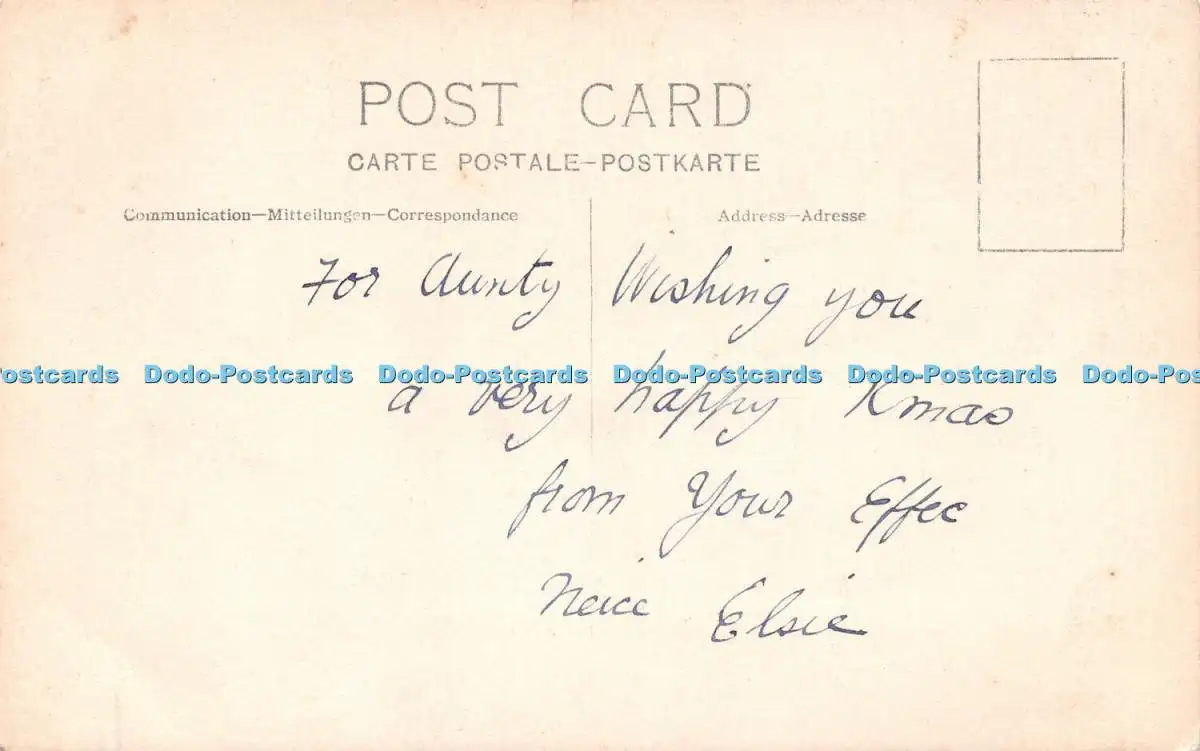 POST CARD
CARTE POSTALE–POSTKARTE
Communication—Mitteilungen—Correspondance
Address—Adresse
For Aunty Wishing you
ostcards Dodo-Postcards Dodo-Postcards Dodo-Postcards Dodo-Postcards Dodo-Pos
a very happy Xmas
from Your Effec
Neice Elsie